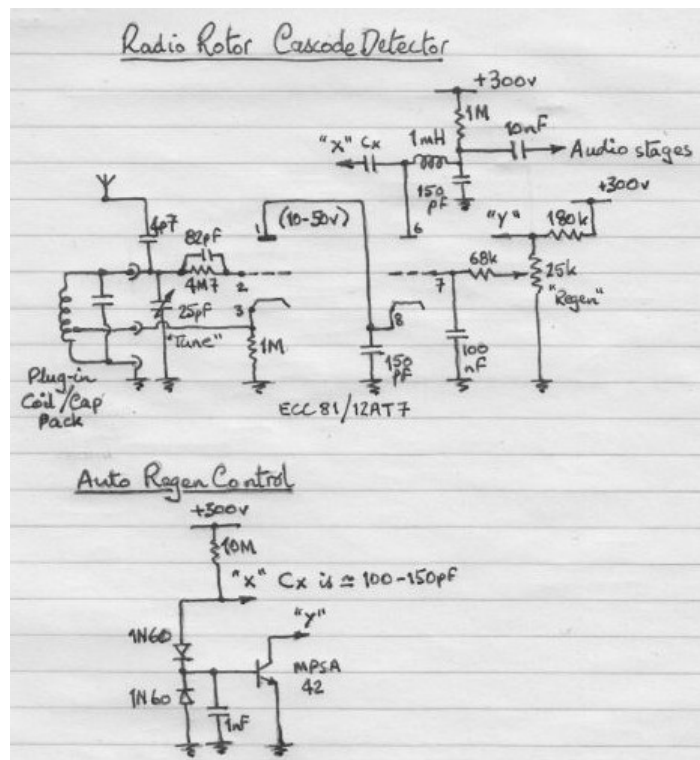 Radio Rotor Cascode Detector
+300v
1M
10nF
1mH
"X" Cx
Audio stages
150
pf
+300v
"Y"
180k
4p7
82pf
1
(10-50v)
6
68k
4M7
2
7
25k
"Regen"
25pF
3
8
"Tune"
1M
150
pf
100
nF
Plug-in
Coil/Cap
Pack
ECC81/12AT7
Auto Regen Control
+300v
10M
"X" Cx is ≃ 100-150pf
"Y"
1N60
MPSA
42
1N60
1nF